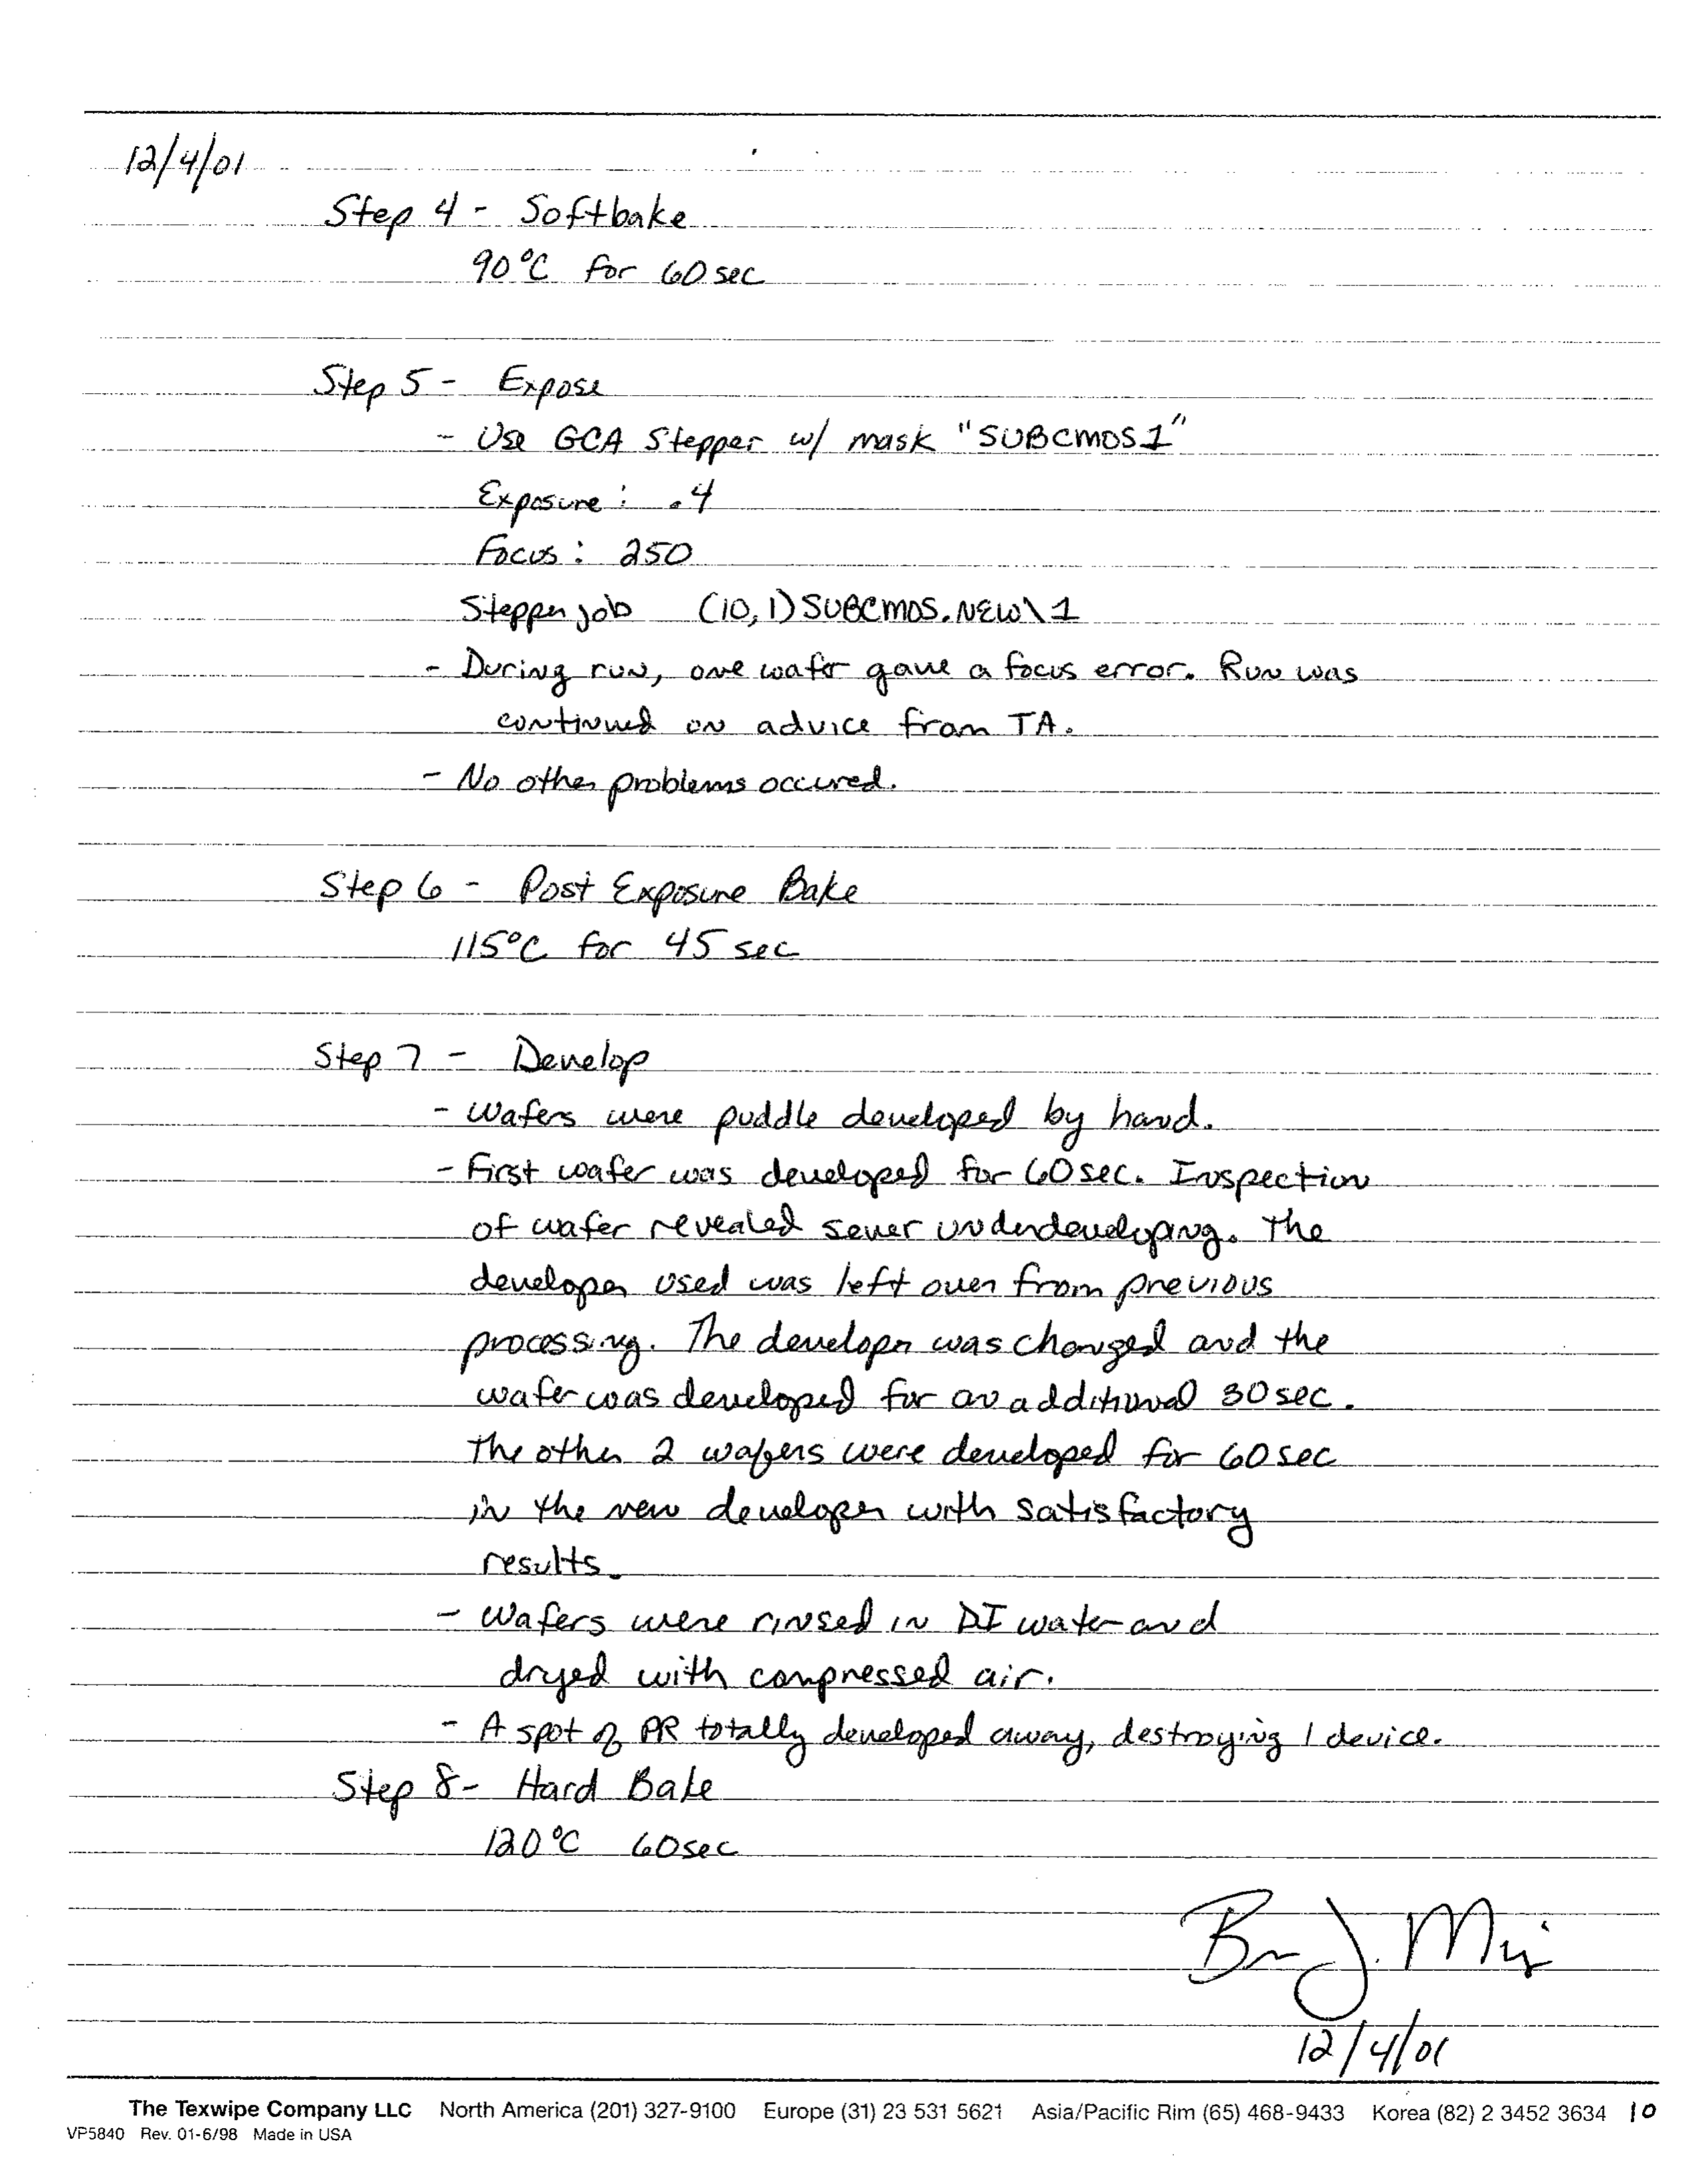 12/4/01
Step 4 - Softbake
90°C for 60 sec
Step 5 - Expose
- Use GCA Stepper w/ mask "SUBCMOS1"
Exposure: .4
Focus: 250
Stepper job (10,1)SUBCMOS.NEW\1
- During run, one wafer gave a focus error. Run was
continued on advice from TA.
- No other problems occured.
Step 6 - Post Exposure Bake
115°C for 45 sec
Step 7 - Develop
- Wafers were puddle developed by hand.
- First wafer was developed for 60 sec. Inspection
of wafer revealed sever underdeveloping. The
developer used was left over from previous
processing. The developer was changed and the
wafer was developed for an additional 30 sec.
The other 2 wafers were developed for 60 sec
in the new developer with satisfactory
results.
- Wafers were rinsed in DI water and
dryed with compressed air.
- A spot of PR totally developed away, destroying 1 device.
Step 8 - Hard Bake
120°C 60 sec
J.
12/4/01
The Texwipe Company LLC North America (201) 327-9100 Europe (31) 23 531 5621 Asia/Pacific Rim (65) 468-9433 Korea (82) 2 3452 3634 10
VP5840 Rev. 01-6/98 Made in USA